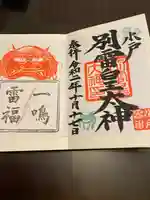 水戸
別雷皇太神
奉拝 令和二年十月十七日
一鳴
雷福